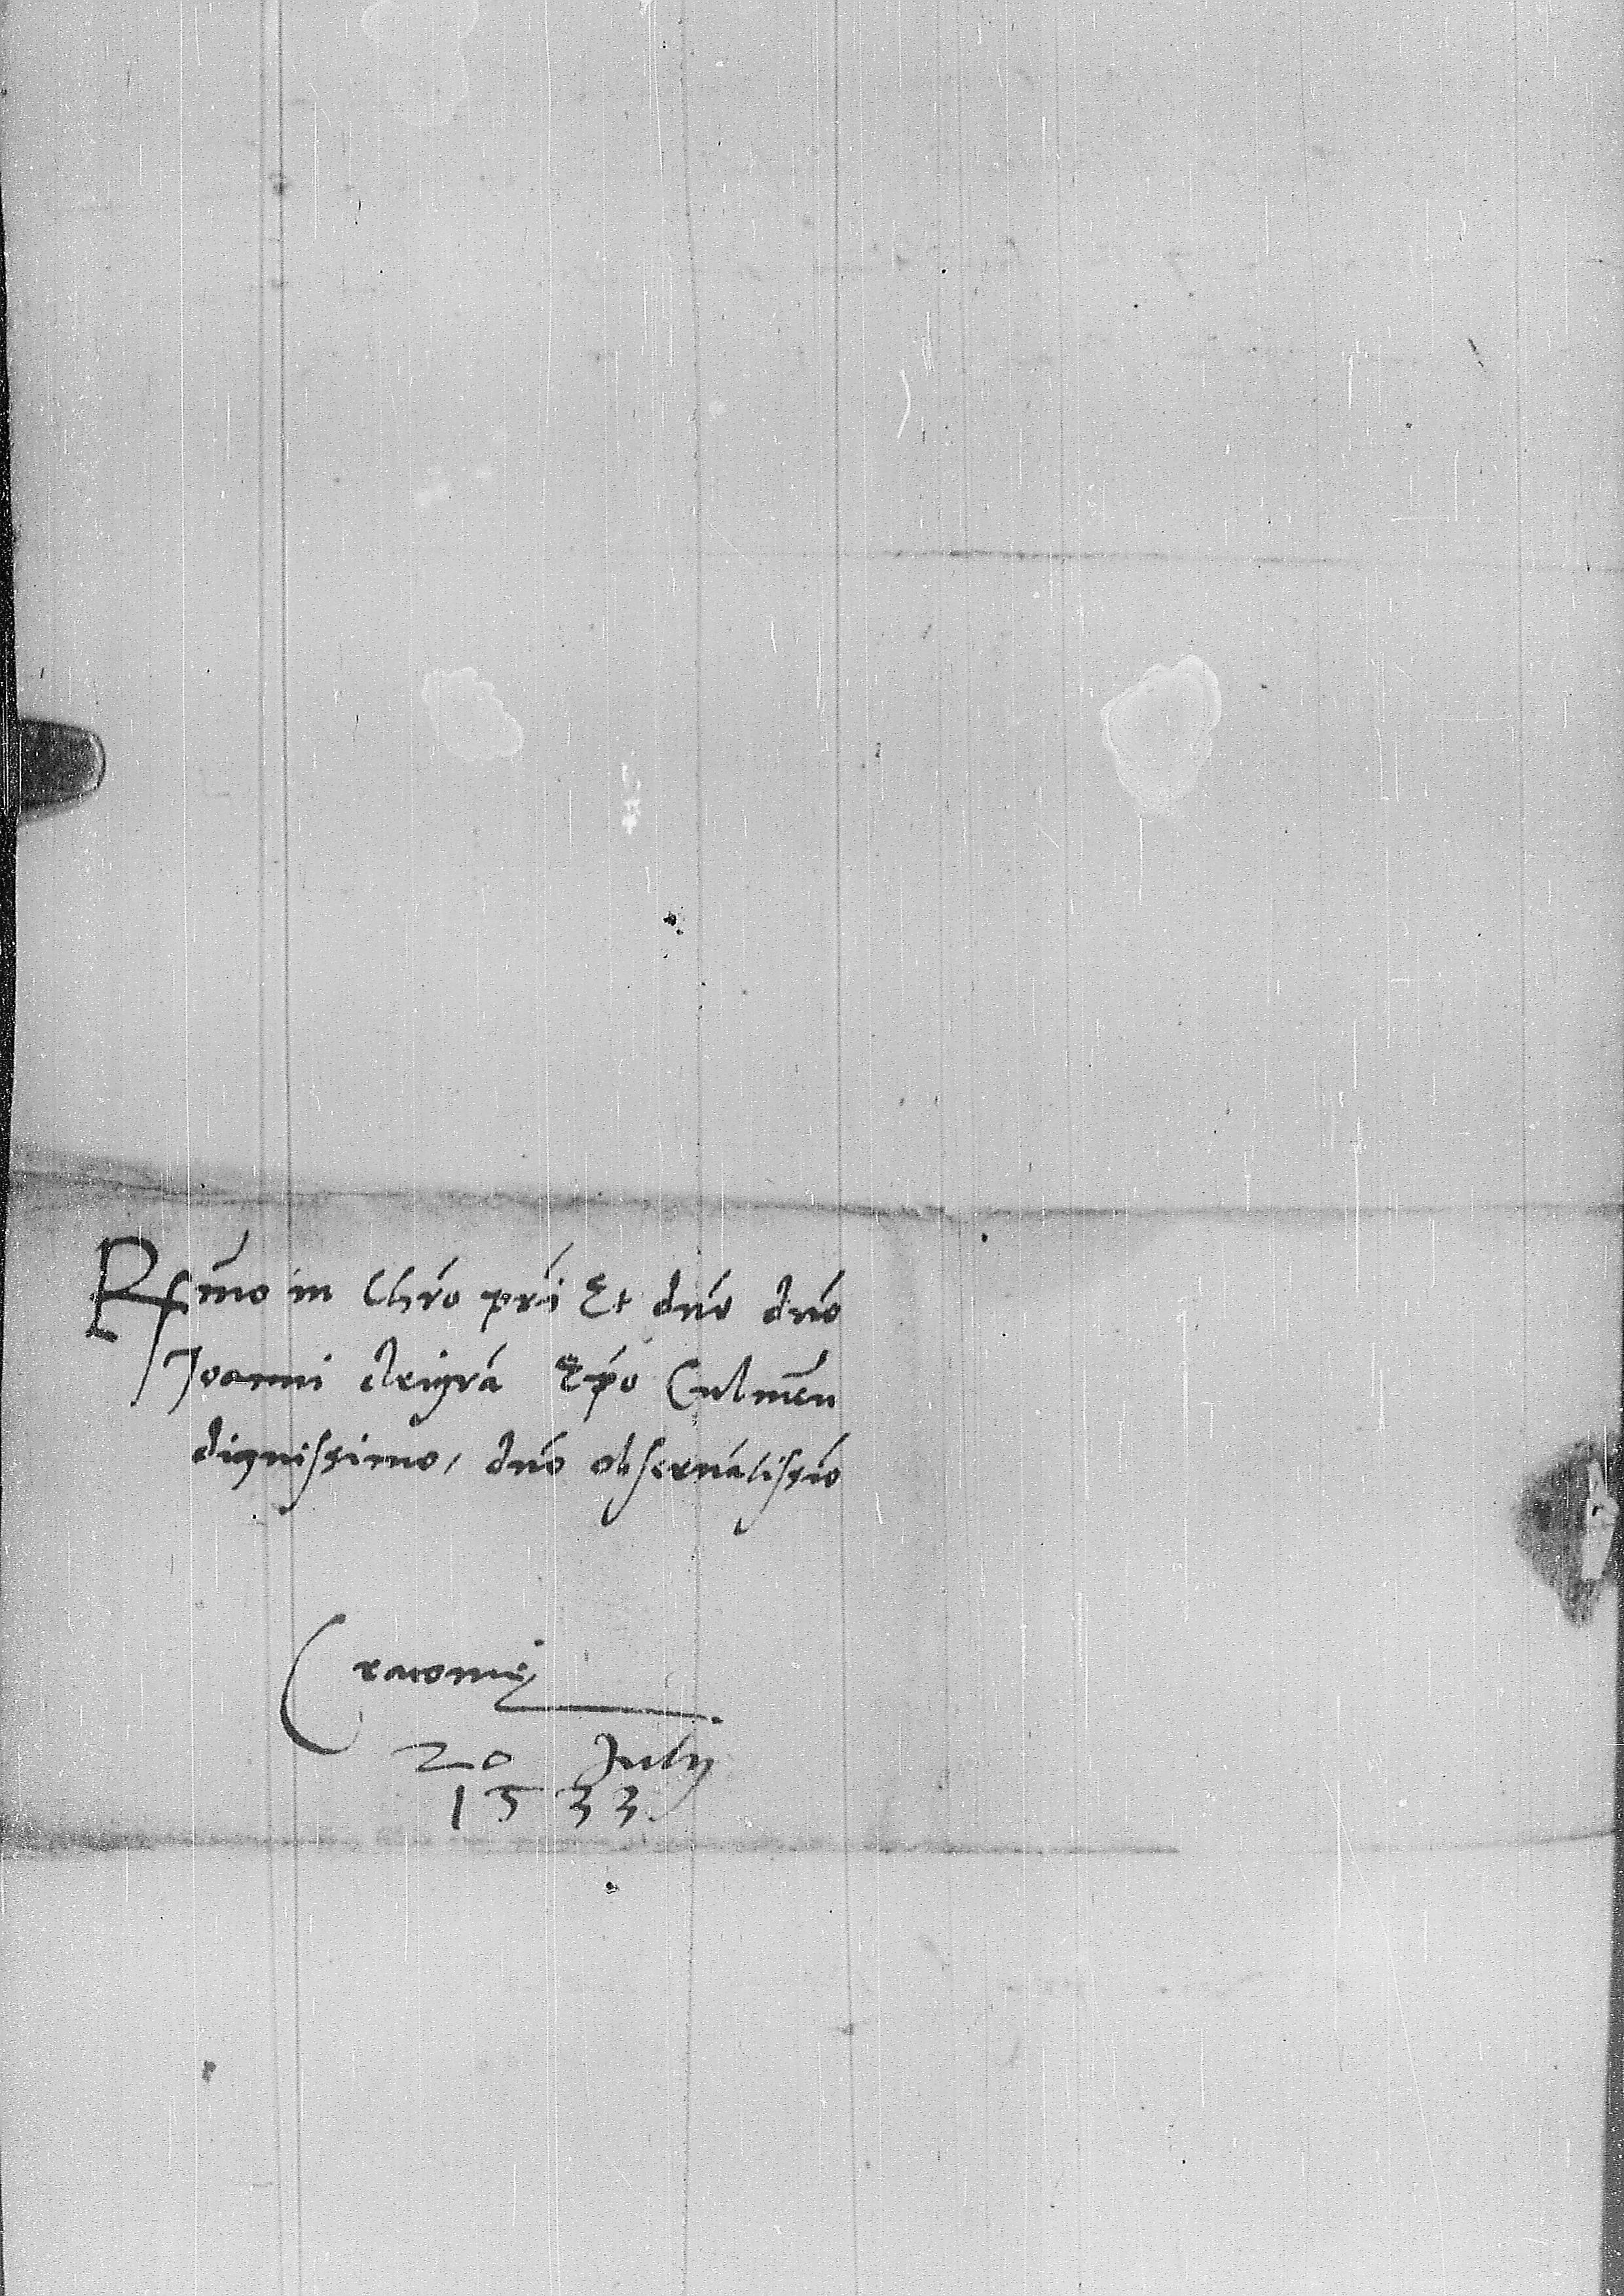 Rssmo in Chro pri Et dno dno
Joanni dei gra Epo Culmen
dignissimo, dno observatissio
Cracovię
20 Julij
1533.